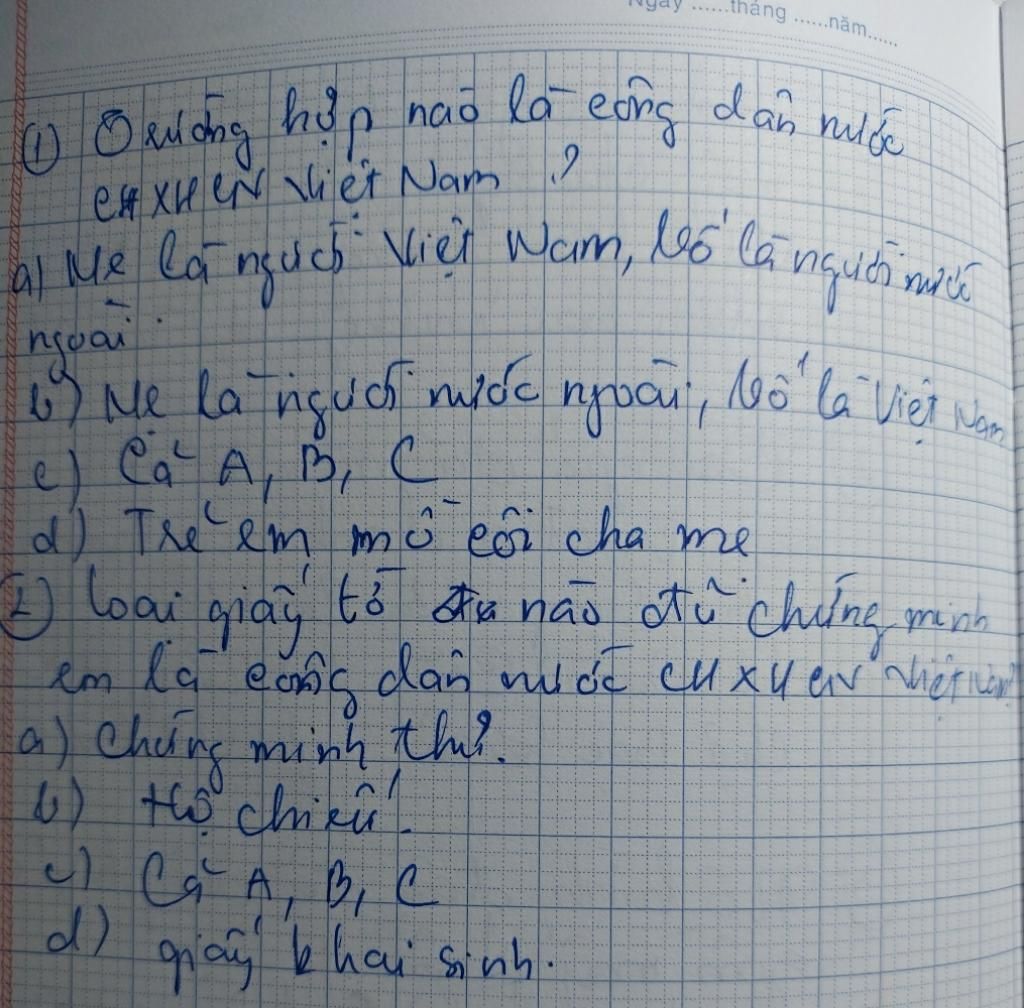 Ngày ......tháng ......năm......
① Trường hợp nào là công dân nước
CHXHCN Việt Nam ?
a) Mẹ là người Việt Nam, bố là người nước
ngoài.
b) Mẹ là người nước ngoài, bố là Việt Nam
c) Cả A, B, C
d) Trẻ em mồ côi cha mẹ
② Loại giấy tờ nào đủ chứng minh
em là công dân nước CHXHCN Việt Nam?
a) Chứng minh thư.
b) Hộ chiếu.
c) Cả A, B, C
d) giấy khai sinh.